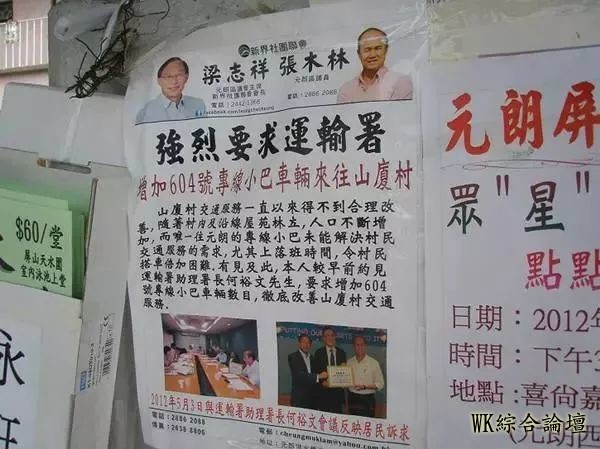 新界社團聯會
梁志祥 張木林
元朗區議會主席
新界社團聯會會長
電話：2442-1366
元朗區議員
電話：2886 2088
強烈要求運輸署
增加604號專線小巴車輛來往山廈村
山廈村交通服務一直以來得不到合理改
善，隨著村內及沿線屋苑林立，人口不斷增
加，而唯一往元朗的專線小巴未能解決村民
交通服務的需求，尤其上落班時間，令村民
搭車倍加困難。有見及此，本人較早前約見
運輸署助理署長何裕文先生，要求增加604
號專線小巴車輛數目，徹底改善山廈村交通
服務。
2012年5月3日與運輸署助理署長何裕文會議反映居民訴求
電話：2886 2088
傳真：2638 8806
電郵：cheungmuklam@yahoo.com.hk
地址：元朗
$60/堂
屏山天水圍
室內泳池上堂
泳
班
元朗屏
眾"星"
點點
日期：2012年
時間：下午3
地點：喜尚嘉
(元朗西
WK綜合論壇